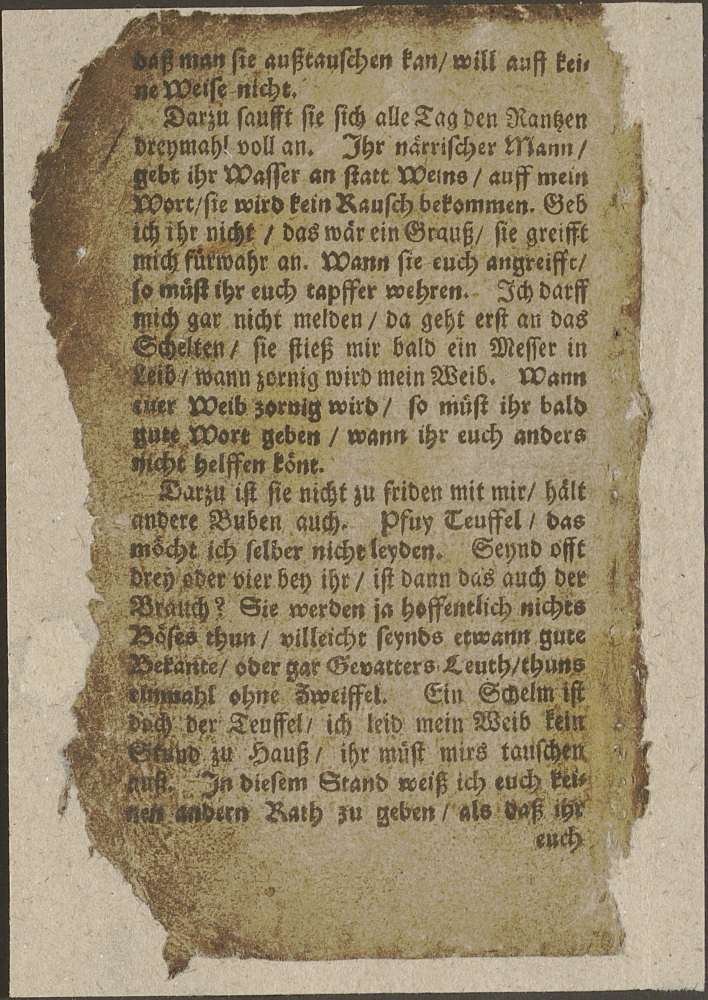 daß man sie außtauschen kan/ will auff kei-
ne Weise nicht.
Darzu saufft sie sich alle Tag den Rantzen
dreymahl voll an. Ihr närrischer Mann/
gebt ihr Wasser an statt Weins/ auff mein
Wort/sie wird kein Rausch bekommen. Geb
ich ihr nicht / das wär ein Grauß/ sie greifft
mich fürwahr an. Wann sie euch angreifft/
so müst ihr euch tapffer wehren. Ich darff
mich gar nicht melden/ da geht erst an das
Schelten/ sie stieß mir bald ein Messer in
Leib/ wann zornig wird mein Weib. Wann
euer Weib zornig wird/ so müst ihr bald
gute Wort geben / wann ihr euch anders
nicht helffen könt.
Darzu ist sie nicht zu friden mit mir/ hält
andere Buben auch. Pfuy Teuffel/ das
möcht ich selber nicht leyden. Seynd offt
drey oder vier bey ihr/ ist dann das auch der
Brauch? Sie werden ja hoffentlich nichts
Böses thun/ villeicht seynds etwann gute
Bekante/ oder gar Gevatters-Leuth/thuns
einmahl ohne Zweiffel. Ein Schelm ist
doch der Teuffel/ ich leid mein Weib kein
Stund zu Hauß/ ihr müst mirs tauschen
auß. In diesem Stand weiß ich euch kei-
nen andern Rath zu geben/ als daß ihr
euch